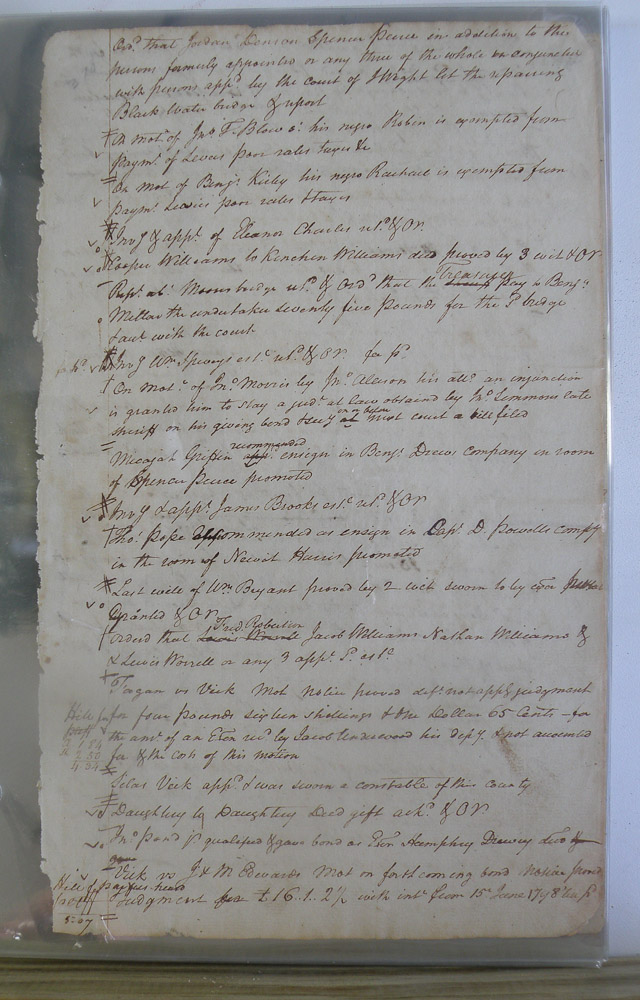 Ord. that Jordan Denson Spencer Pierce in addition to the
persons formerly appointed or any three of the whole in conjunction
with persons app.d by the court of I Wight let the repairing
Black Water bridge & report
On mot.n of Jn.o T. Blow & his negro Robin is exempted from
paym.t of Levies poor rates taxes &c
On Mot. of Benj.a Kirby his negro Rachael is exempted from
paym.t Levies poor rates & taxes
Inv.y & app.t of Eleanor Charles ret.d & Or.
Cooper Williams to Kinchen Williams deed proved by 3 wit & OR
Treasurer
Rep.t ab.t bridge ret.d & Ord.d that the pay to Benj.a
the undertaker seventy five pounds for the s.d bridge
with the court
Inv.y Wm Spiveys est. ret.d & Or. for p.r
On Mot.n of Jn.o Morris by Jn.o his att.o an injunction
is granted him to stay a jud.t at law obtained by Lemmons late
on or before
sheriff on his giving bond & secy at next court a bill filed
recommended
Micajah Griffin app.d ensign in Benj.a Drews company in room
of Spencer Pierce promoted
Inv.y & app.t James Brooks est. ret.d & OR
Tho.s Pope recommended as ensign in Cap.t D. Powells comp.y
in the room of Newit Harris promoted
Last will of Wm Bryant proved by 2 wit sworn to by exor probat
Granted & OR
Fred Roberson
ordered that Lewis Worrell Jacob Williams Nathan Williams &
& Lewis Worrell or any 3 app.t s.d est.
Fagan vs Vick Mot Notice proved def.t not app.g judgment
for four pounds sixteen shillings & One Dollar 65 Cents for
the am.t of an Exon rec.d by Jacob Underwood his dep.y & not accounted
for & the costs of this motion
Silas Vick app.d & was sworn a constable of this county
Daughtry to Daughtry Deed gift ack.d & OR
Jn.o Pond j.r qualified & gave bond as Exor Humphry Drewry
Vick vs J & M Edwards Mot on forthcoming bond Notice proved
parties heard
Judgment for £16..1..2½ with int. from 15 June 1798